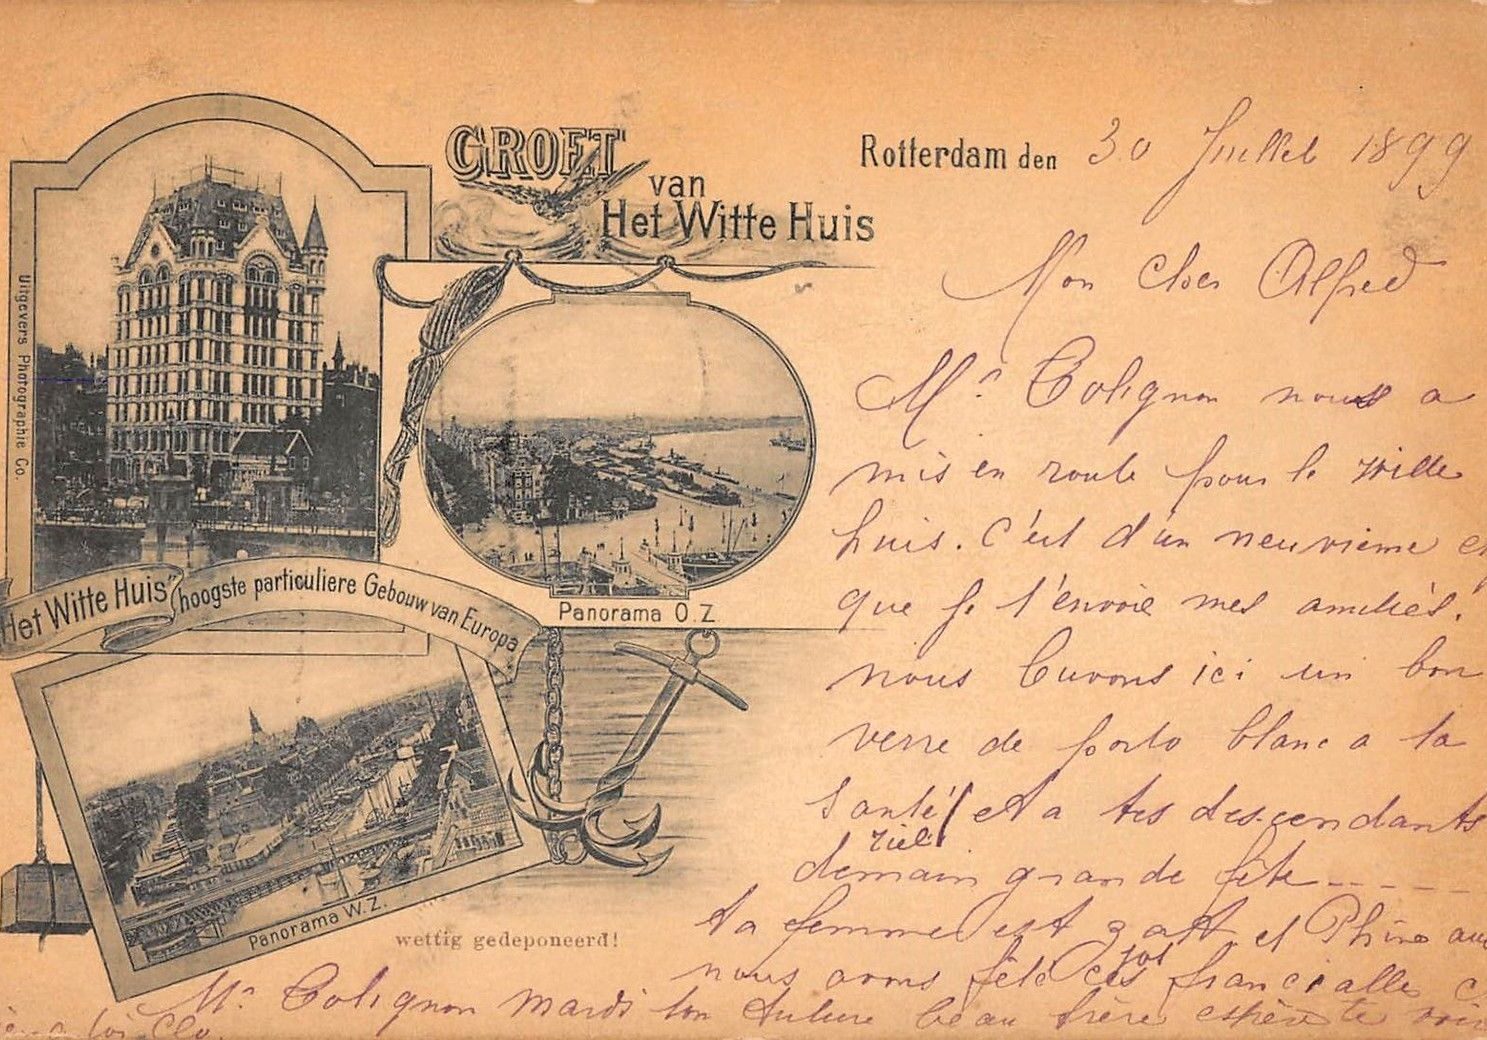 GROET
van
Het Witte Huis
Rotterdam den 30 Juillet 1899
Uitgevers Photographie Co.
"Het Witte Huis" hoogste particuliere Gebouw van Europa
Panorama O.Z
Panorama W.Z.
wettig gedeponeerd!
Mon cher Alfred
Mr Colignon nous a
mis en route pour le witte
huis. c'est d'un neuvième
que je t'envoie mes amitiés.
nous buvons ici un bon
verre de porto blanc a ta
santé et a tes descendants
demain grande fête-----
ta femme est et
nous avons fêté ces
Mr Colignon mardi ton future beau frère espère te